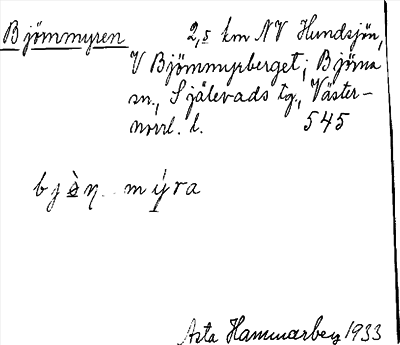 Björnmyren 2,5 km NV Hundsjön,
V Björnmyrberget; Björna
sn., Själevads tg., Väster-
norrl. l. 545
bjò̱ṇ mýra
Asta Hammarberg 1933